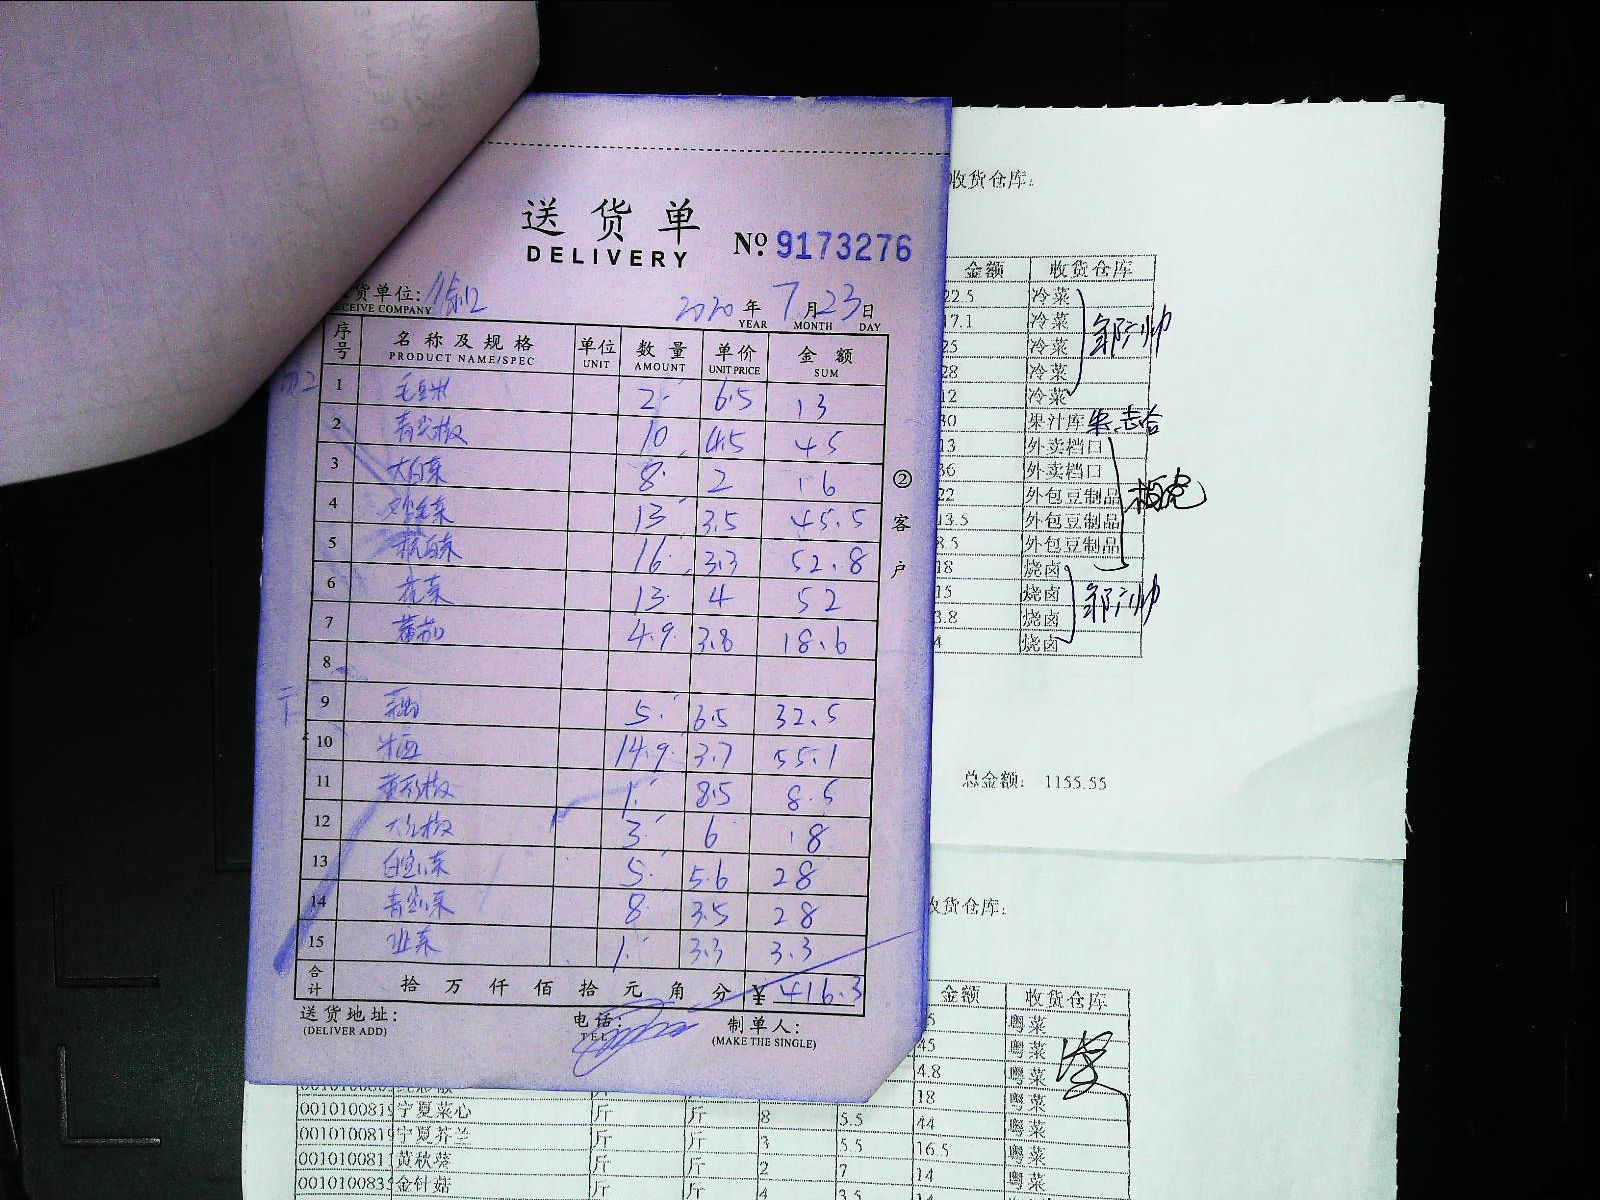 送货单
DELIVERY
№ 9173276
货单位:
CEIVE COMPANY
2020 年 7 月 23 日
YEAR MONTH DAY
序号 名称及规格 单位 数量 单价 金额
PRODUCT NAME/SPEC UNIT AMOUNT UNIT PRICE SUM
1 毛豆米 2 6.5 13
2 青尖椒 10 4.5 45
3 大白菜 8 2 16
4 13 3.5 45.5
5 杭白菜 16 3.3 52.8
6 花菜 13 4 52
7 蕃茄 4.9 3.8 18.6
8
9 5 6.5 32.5
10 14.9 3.7 55.1
11 1 8.5 8.5
12 3 6 18
13 5 5.6 28
14 8 3.5 28
15 1 3.3 3.3
合计 拾 万 仟 佰 拾 元 角 分 ¥ 416.3
送货地址:
(DELIVER ADD)
电话:
TEL
制单人:
(MAKE THE SINGLE)
②客户
收货仓库:
金额 收货仓库
22.5 冷菜
17.1 冷菜
25 冷菜
28 冷菜
12 冷菜
30 果汁库
13 外卖档口
36 外卖档口
22 外包豆制品
13.5 外包豆制品
8.5 外包豆制品
18 烧卤
15 烧卤
3.8 烧卤
4 烧卤
总金额: 1155.55
收货仓库:
金额 收货仓库
5 粤菜
45 粤菜
4.8 粤菜
18 粤菜
001010081 宁夏菜心 斤 斤 8 5.5 44 粤菜
001010081 宁夏芥兰 斤 斤 3 5.5 16.5 粤菜
001010081 黄秋葵 斤 斤 2 7 14 粤菜
001010083 金针菇 斤 斤 4 3.5 14 粤菜